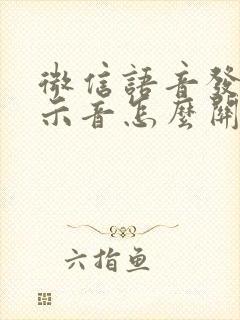 微信語音發
示音怎麼開
六指鱼